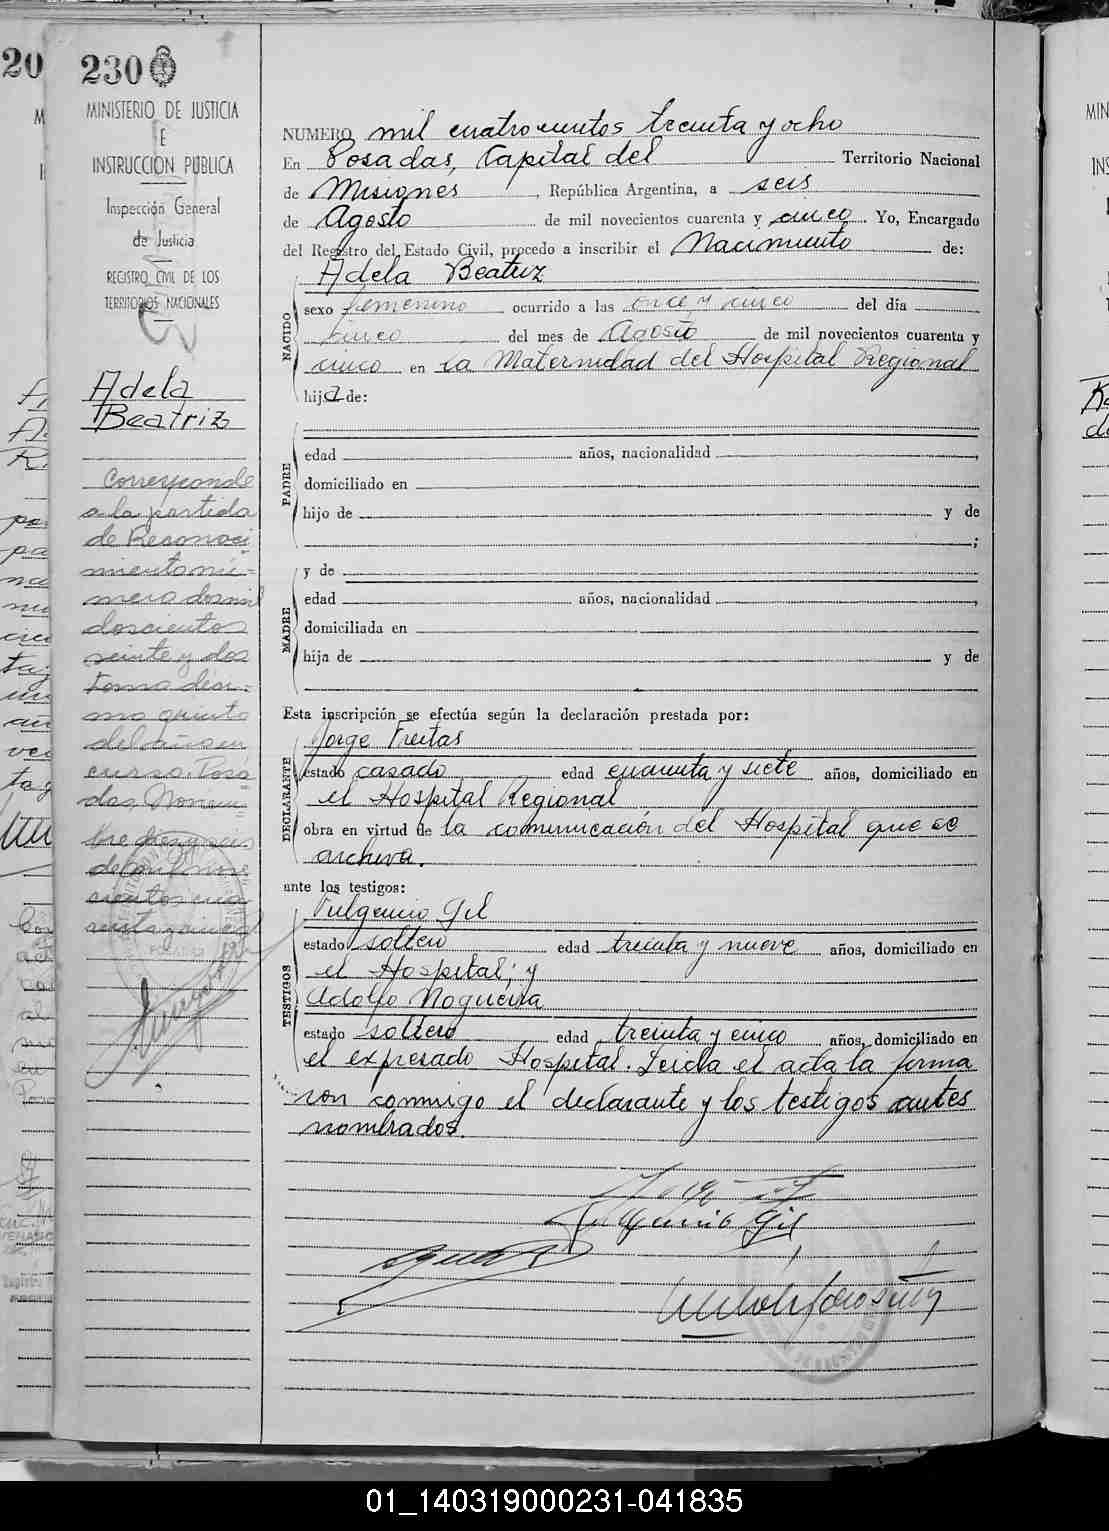 230
MINISTERIO DE JUSTICIA
E
INSTRUCCION PUBLICA
Inspección General
de Justicia
REGISTRO CIVIL DE LOS
TERRITORIOS NACIONALES
Adela
Beatriz
Corresponde
a la partida
de Reconoci
miento nú=
mero dos mil
doscientos
veinte y dos
Tomo déci-
mo quinto
del año en
curso. Posa
das, Noviem
bre diez y seis
de mil nove
cientos cua
renta y cinco
NUMERO mil cuatrocientos treinta y ocho
En Posadas, Capital del Territorio Nacional
de Misiones, República Argentina, a seis
de Agosto de mil novecientos cuarenta y cinco. Yo, Encargado
del Registro del Estado Civil, procedo a inscribir el Nacimiento de:
Adela Beatriz
NACIDO
sexo femenino ocurrido a las once y cinco del día
cinco del mes de Agosto de mil novecientos cuarenta y
cinco en la Maternidad del Hospital Regional
hija de:
PADRE
edad años, nacionalidad ,
domiciliado en
hijo de y de
;
y de
MADRE
edad años, nacionalidad ,
domiciliada en
hija de y de
Esta inscripción se efectúa según la declaración prestada por:
Jorge Freitas
DECLARANTE
estado casado edad cuarenta y siete años, domiciliado en
el Hospital Regional
obra en virtud de la comunicación del Hospital que se
archiva.
ante los testigos:
Fulgencio Gil
TESTIGOS
estado soltero edad treinta y nueve años, domiciliado en
el Hospital; y
Adolfo Nogueira
estado soltero edad treinta y cinco años, domiciliado en
el expresado Hospital. Leida el acta la firma
ron conmigo el declarante y los testigos antes
nombrados.
Fulgencio Gil
01_140319000231-041835